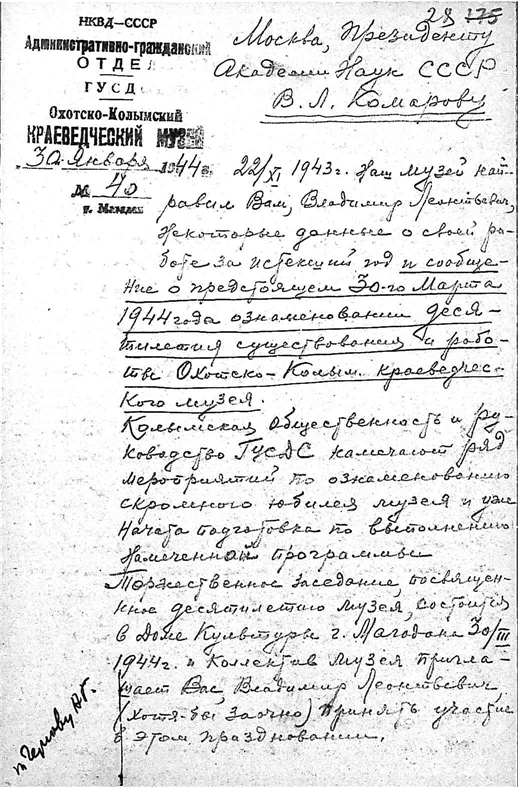 28 175
НКВД–СССР
Административно-гражданский
ОТДЕЛ
ГУСД
Охотско-Колымский
КРАЕВЕДЧЕСКИЙ МУЗЕЙ
30 Января 1944 г.
№ 40
г. Магадан
Москва, Президенту
Академии Наук СССР
В. Л. Комарову
22/XI 1943 г. Наш музей нап-
равил Вам, Владимир Леонтьевич,
некоторые данные о своей ра-
боте за истекший год и сообще-
ние о предстоящем 30-го Марта
1944 года ознаменовании деся-
тилетия существования и рабо-
ты Охотско-Колым. краеведчес-
кого музея.
Колымская общественность и ру-
ководство ГУСДС намечают ряд
мероприятий по ознаменованию
скромного юбилея музея и уже
начата подготовка по выполнению
намеченной программы.
Торжественное заседание, посвящен-
ное десятилетию музея, состоится
в Доме Культуры г. Магадана 30/III
1944 г. и коллектив музея пригла-
шает Вас, Владимир Леонтьевич,
(хотя-бы заочно) принять участие
в этом праздновании.
т. Чернову А.Г.